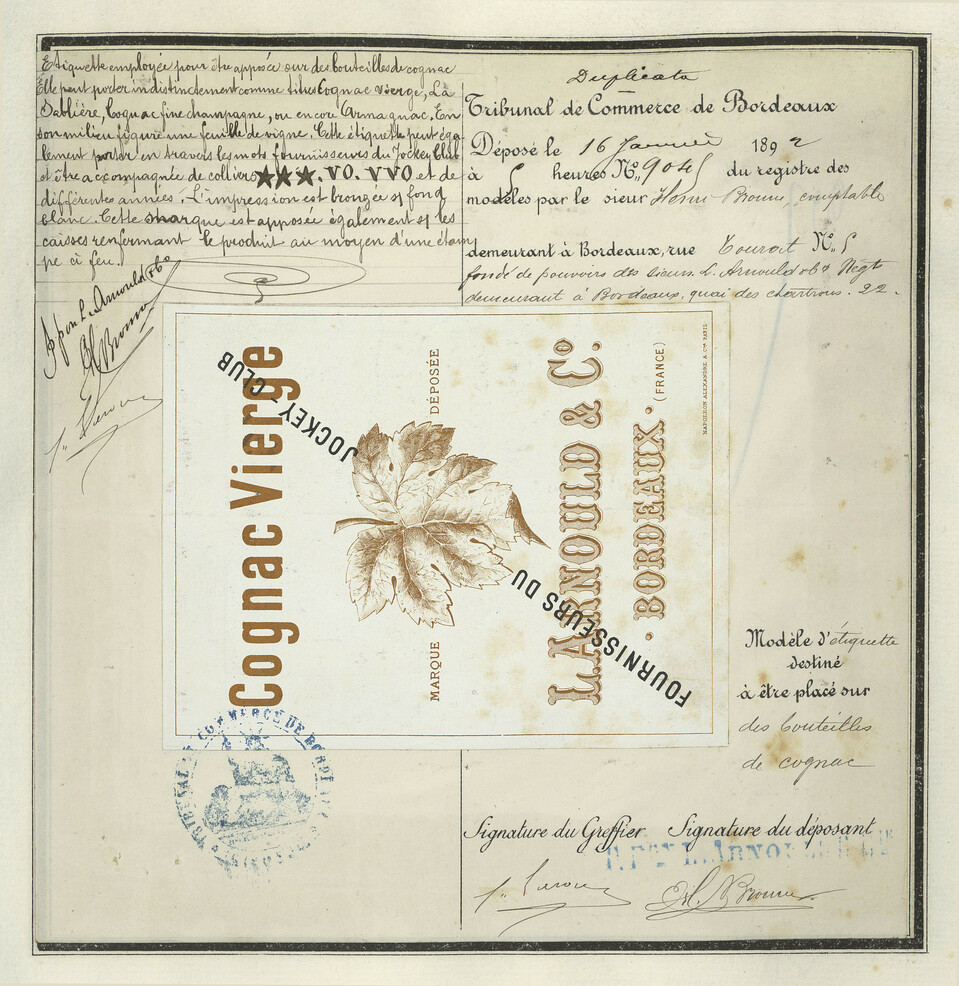 Etiquette employée pour être apposée sur des bouteilles de cognac
Elle peut porter indistinctement comme titres Cognac vierge, La
Sablière, Cognac fine champagne, ou encore Armagnac. En
son milieu figure une feuille de vigne. Cette étiquette peut éga-
lement porter en travers les mots fournisseurs du Jockey Club
et être accompagnée de colliers ★★★. VO. VVO et de
différentes années. L'impression est bronzée s/ fond
blanc. Cette marque est apposée également s/ les
caisses renfermant le produit au moyen d'une étam
pe ci feu.
Ppon L. Arnould & Co
Duplicata
Tribunal de Commerce de Bordeaux
Déposé le 16 Janvier 1892
à 5 heures No. 9045 du registre des
modèles par le sieur Henri comptable
demeurant à Bordeaux, rue No. 5
fondé de pouvoirs des sieurs L. Arnould & Co, Négts
demeurant à Bordeaux, quai des chartrons. 22.
Cognac Vierge
MARQUE DÉPOSÉE
L. ARNOULD & Co.
· BORDEAUX · (FRANCE)
NAPOLEON ALEXANDRE & Cie PARIS
FOURNISSEURS DU JOCKEY-CLUB
Modèle d'étiquette
destiné
à être placé sur
des bouteilles
de cognac
TRIBUNAL DE COMMERCE DE BORDEAUX
Signature du Greffier Signature du déposant
P. Pon L. ARNOULD & CIE